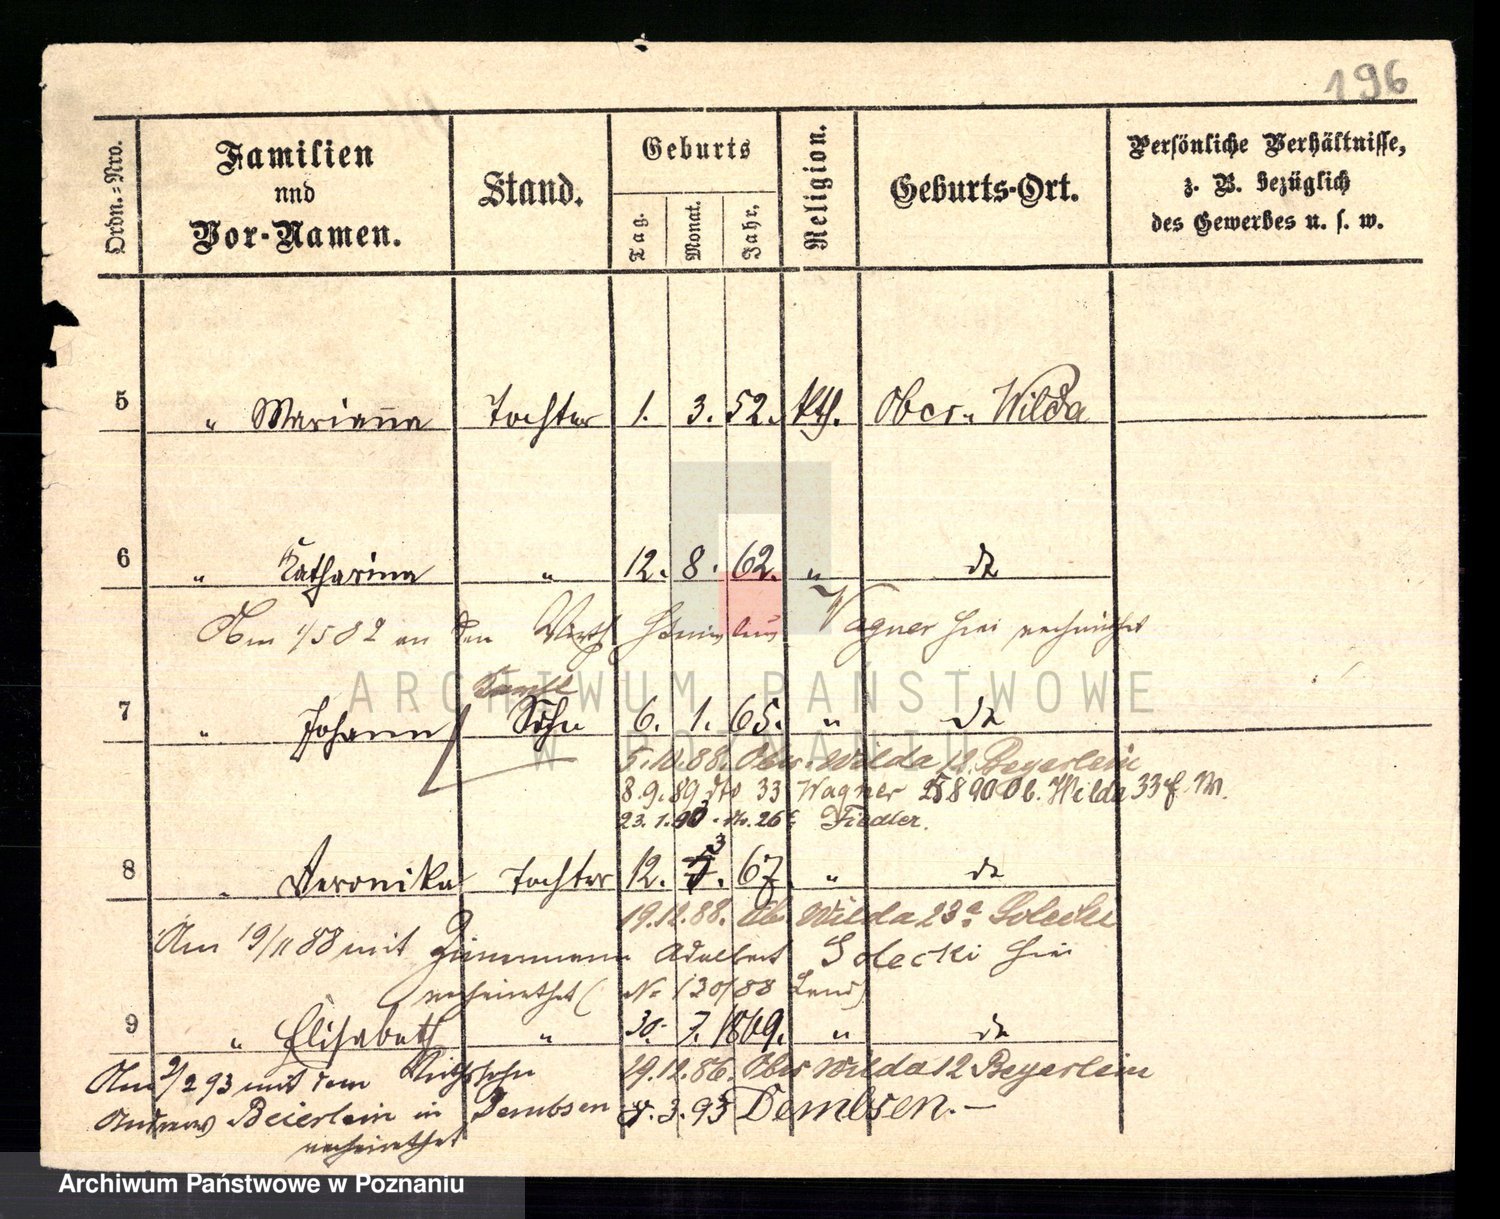 196
Ordn.-Nro.
Familien
und
Vor-Namen.
Stand.
Geburts
Tag.
Monat.
Jahr.
Religion.
Geburts-Ort.
Persönliche Verhältnisse,
z. B. bezüglich
des Gewerbes u. s. w.
5 " Marianna Tochter 1. 3. 52. kth. Ober-Wilda
6 " Katharina " 12. 8. 62. " do
Am 1/5 82 an den Wirth Wagner hier verheirathet
7 " Johann Sohn 6. 1. 65. " do
5.10.88. Ober-Wilda 12 Beyerlein
8.9.89 dto 33 Wagner 25 8 90 Ob. Wilda 33 f. W.
23.1.93. No. 26 Fiedler.
8 " Veronika Tochter 12. 3. 67. " do
19.12.88. Ob Wilda 23a Solecki
Am 19/11 88 mit Zimmermann Adalbert Solecki hier
verheirathet ( No 130/88 )
9 " Elisabeth " 30. 7. 1869. " do
29.12.86. Ober Wilda 12 Beyerlein
Am 2/2 93 mit dem Wirthssohn
Andreas Beierlein in Dembsen 8.3.93 Dembsen.—
verheirathet
ARCHIWUM PAŃSTWOWE
W POZNANIU
Archiwum Państwowe w Poznaniu